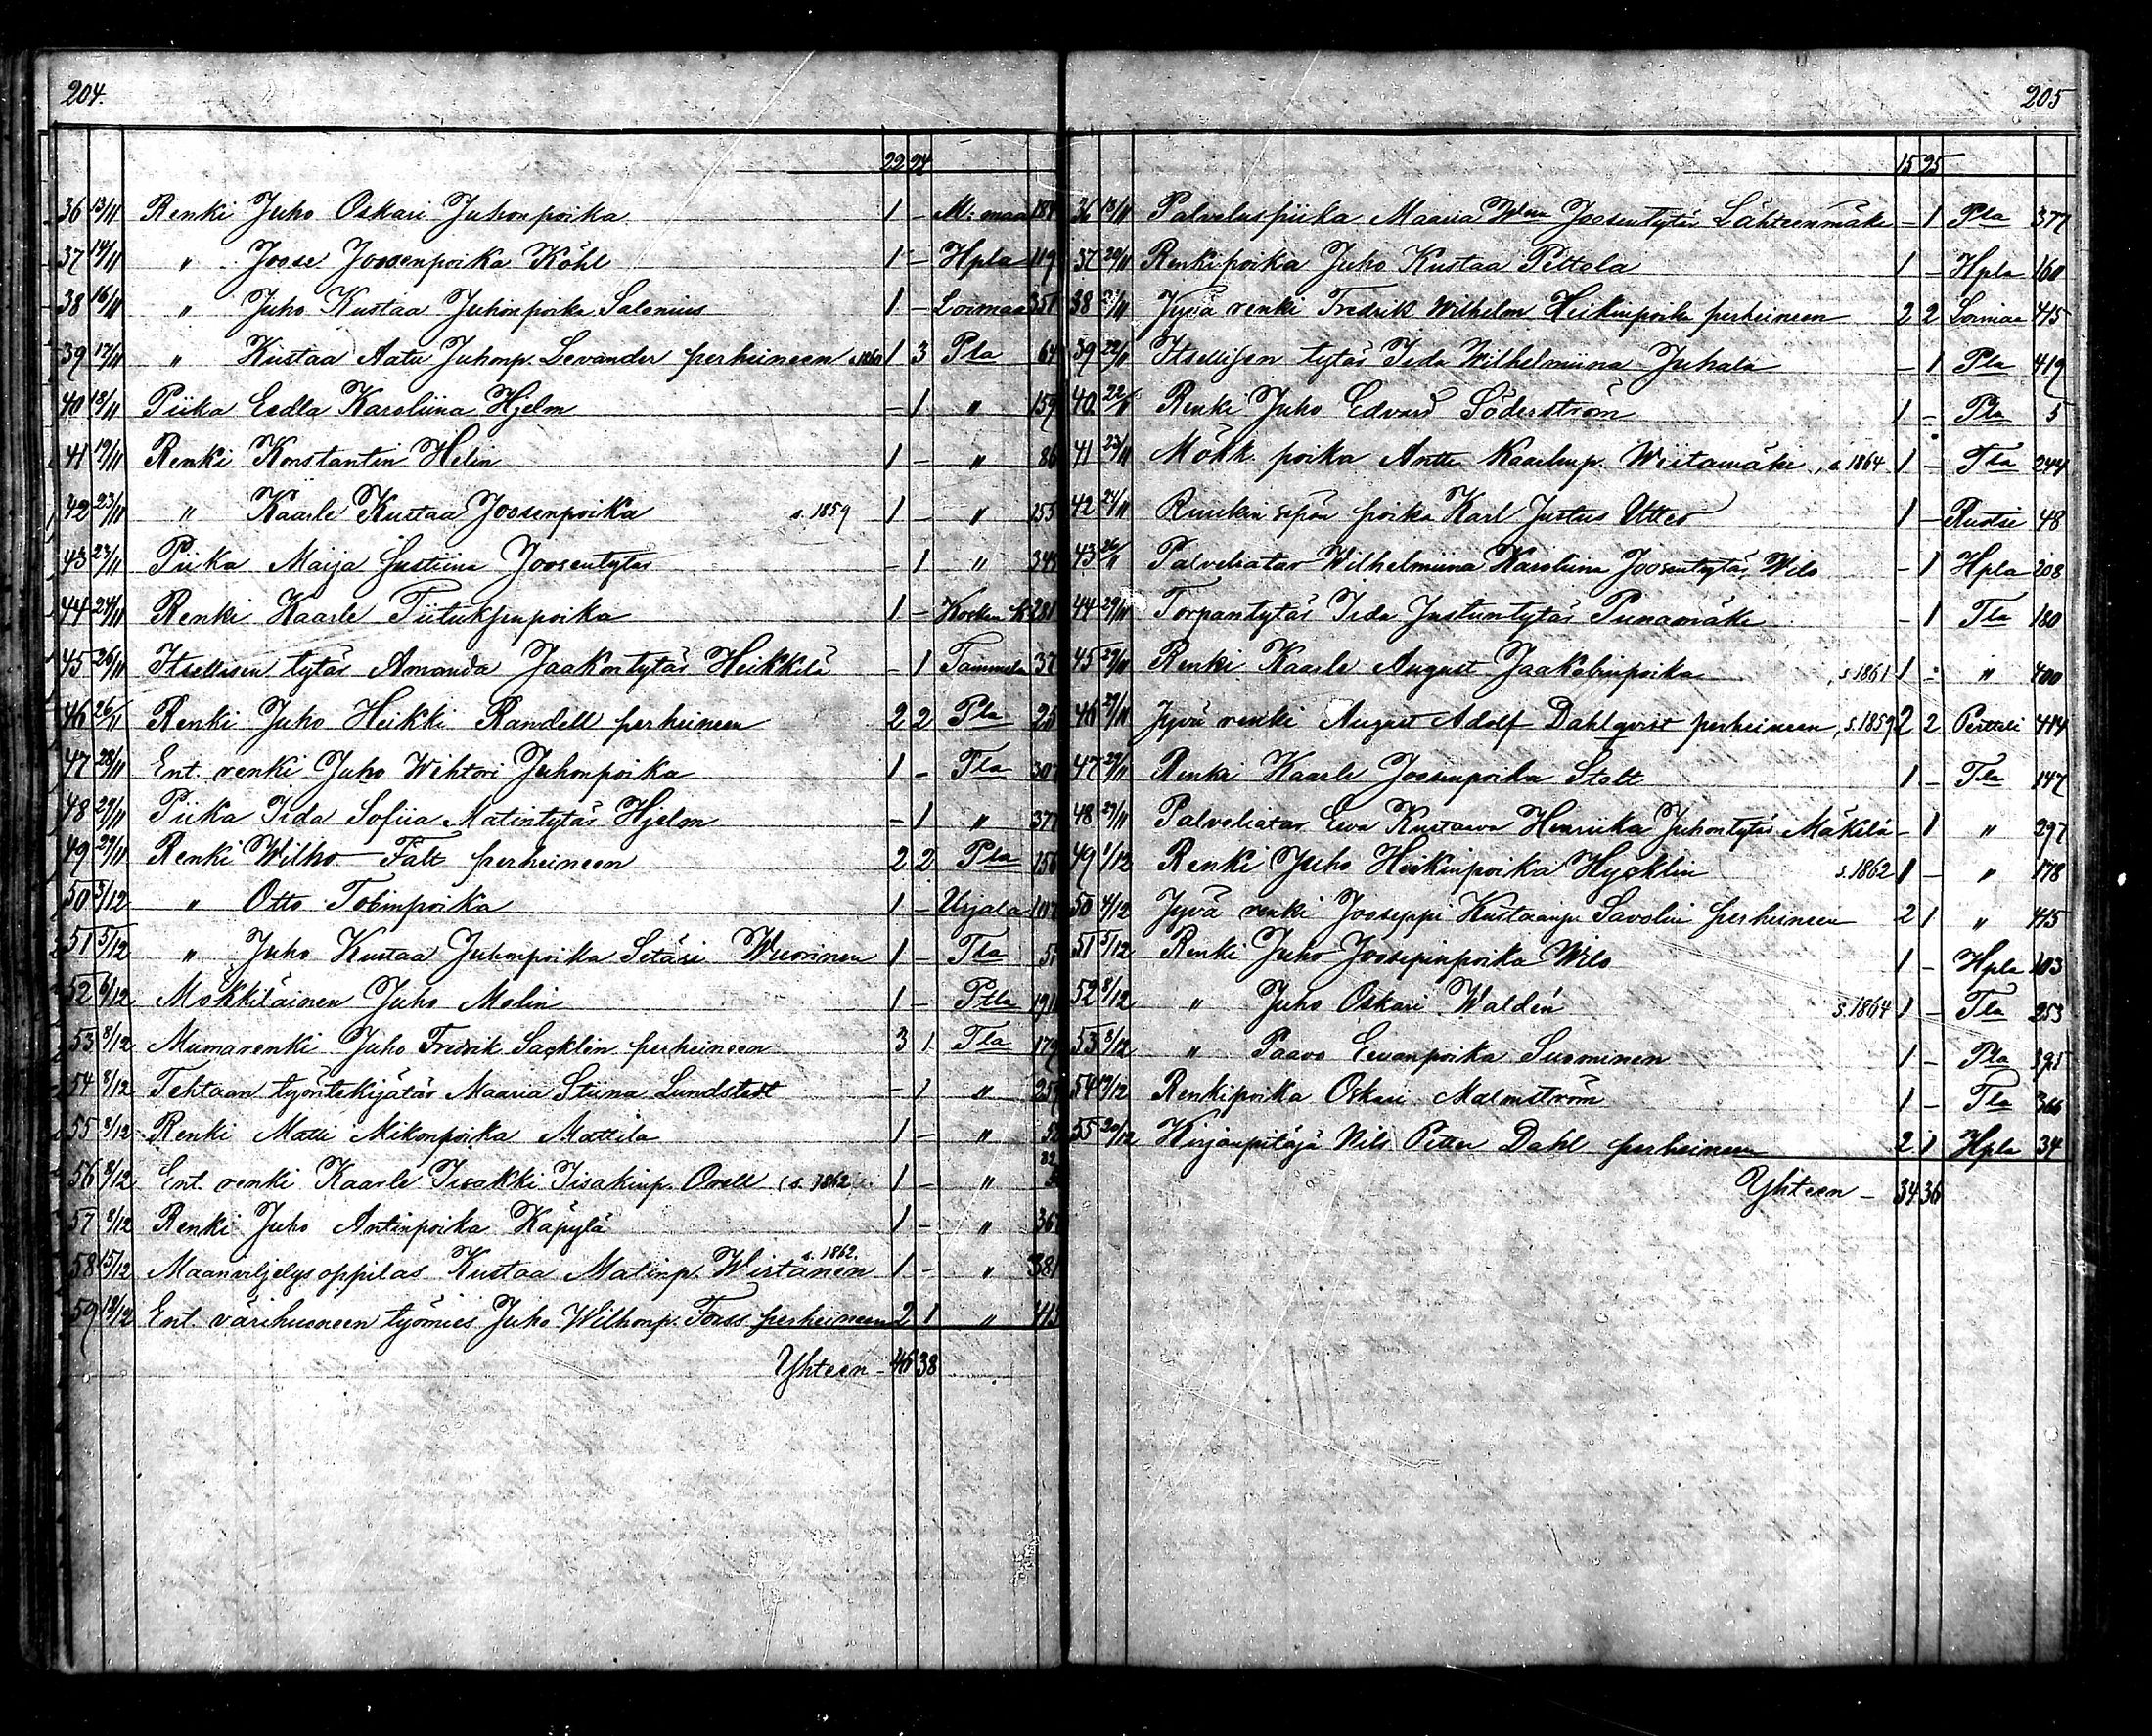 204.
22 24
36 13/11 Renki Juho Oskari Juhonpoika 1 - M:maa
37 14/11 " Joose Joosenpoika Köhl 1 - Hpla 119
38 16/11 " Juho Kustaa Juhonpoika Salenius 1 - Loimaa 351
39 17/11 " Kustaa Aatu Juhonp. Levander perheineen 1 3 Pla 64
40 18/11 Piika Eedla Karoliina Hjelm - 1 " 159
41 19/11 Renki Konstantin Helin 1 - " 86
42 23/11 " Kaarle Kustaa Joosenpoika s. 1859 1 - " 253
43 23/11 Piika Maija Justiina Joosentytär - 1 " 345
44 24/11 Renki Kaarle Tiituksenpoika 1 - 281
45 26/11 Itsellisen tytär Amanda Jaakontytär Heikkilä - 1 Tammela 37
46 26/11 Renki Juho Heikki Randell perheineen 2 2 Pla 25
47 28/11 Ent. renki Juho Wihtori Juhonpoika 1 - Tla 307
48 29/11 Piika Iida Sofiia Matintytär Hjelm - 1 " 377
49 29/11 Renki Wilho Fält perheineen 2 2 Pla 156
50 3/12 " Otto Tobinpoika 1 - Urjala 107
51 5/12 " Juho Kustaa Juhonpoika Setäri Wuorinen 1 - Tla
52 6/12 Mökkiläinen Juho Molin 1 - Ptla
53 8/12 Mumarenki Juho Fredrik Sacklin perheineen 3 1 Tla 179
54 8/12 Tehtaan työntekijätär Maaria Stiina Lundstedt - 1 " 259
55 8/12 Renki Matti Mikonpoika Mattila 1 - "
56 8/12 Ent. renki Kaarle Iisakki Iisakinp. Orell (s. 1862 1 - "
57 8/12 Renki Juho Antinpoika Käpylä 1 - "
58 15/12 Maanviljelysoppilas Kustaa Matinp. Wirtanen s. 1862. 1 - " 381
59 18/12 Ent. värihuoneen työmies Juho Wilhonp. Forss perheineen 2 1 " 413
Yhteen - 46 38
205
15 25
36 18/11 Palveluspiika Maaria Wna Joosentytär Lähteenmäki - 1 Pla 377
37 20/11 Renkipoika Juho Kustaa Pettola 1 - Hpla 160
38 21/11 Jyvä renki Fredrik Wilhelm Heikinpoika perheineen 2 2 Loimaa 415
39 22/11 Itsellisen tytär Iida Wilhelmiina Juhala - 1 Pla 419
40 22/11 Renki Juho Edvard Söderström 1 - Pla 5
41 23/11 Mökk. poika Antti Kaarlenp. Wiitamäki, s. 1864 1 - Tla 244
42 24/11 Ruukin sepän poika Karl Justus Utter 1 - Ruotsi 48
43 26/11 Palveliatar Wilhelmiina Karoliina Joosentytär Wilo - 1 Hpla 208
44 29/11 Torpantytär Iida Justuntytär Punamäki - 1 Tla 180
45 29/11 Renki Kaarle August Jaakobinpoika, s. 1861 1 - " 400
46 29/11 Jyvä renki August Adolf Dahlqvist perheineen, s. 1859 2 2 Pertteli 414
47 29/11 Renki Kaarle Joosenpoika Stolt 1 - Tla 147
48 29/11 Palveliatar Eeva Kustaava Henriika Juhontytär Mäkelä - 1 " 297
49 1/12 Renki Juho Heikinpoika Hycklin s. 1862 1 - " 178
50 4/12 Jyvä renki Jooseppi Kustaanp. Savolin perheineen 2 1 " 415
51 5/12 Renki Juho Joosepinpoika Wilo 1 - Hpla 103
52 8/12 " Juho Oskari Waldén s. 1864 1 - Tla 253
53 8/12 " Paavo Eevanpoika Suominen 1 - Pla 395
54 19/12 Renkipoika Oskari Malmström 1 - Tla 366
55 20/12 Kirjanpitäjä Nils Petter Dahl perheineen 2 1 Hpla 34
Yhteen - 34 36